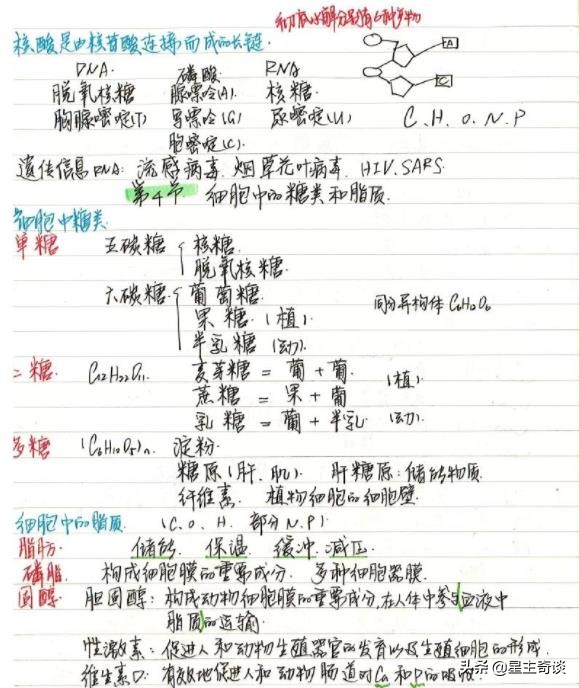 初步水解分别有4种产物
核酸是由核苷酸连接而成的长链.
DNA. 磷酸 RNA
脱氧核糖 腺嘌呤(A). 核糖.
胸腺嘧啶(T) 鸟嘌呤(G) 尿嘧啶(U) C.H.O.N.P
胞嘧啶(C).
A
C
遗传信息RNA: 流感病毒.烟草花叶病毒.HIV.SARS.
第4节. 细胞中的糖类和脂质.
细胞中糖类.
单糖 五碳糖 核糖.
脱氧核糖.
六碳糖. 葡萄糖. 同分异构体C6H12O6
果糖.(植).
半乳糖 (动).
二糖. C12H22O11. 麦芽糖 = 葡 + 葡. (植).
蔗糖 = 果 + 葡
乳糖 = 葡 + 半乳. (动).
多糖 (C6H10O5)n. 淀粉.
糖原(肝.肌). 肝糖原:储能物质.
纤维素. 植物细胞的细胞壁.
细胞中的脂质. (C.O.H.部分N.P).
脂肪. 储能. 保温. 缓冲.减压.
磷脂. 构成细胞膜的重要成分. 多种细胞器膜.
固醇. 胆固醇:构成动物细胞膜的重要成分,在人体中参与血液中
脂质的运输.
性激素:促进人和动物生殖器官的发育以及生殖细胞的形成.
维生素D:有效地促进人和动物肠道对Ca和P的吸收.
头条@星主奇谈